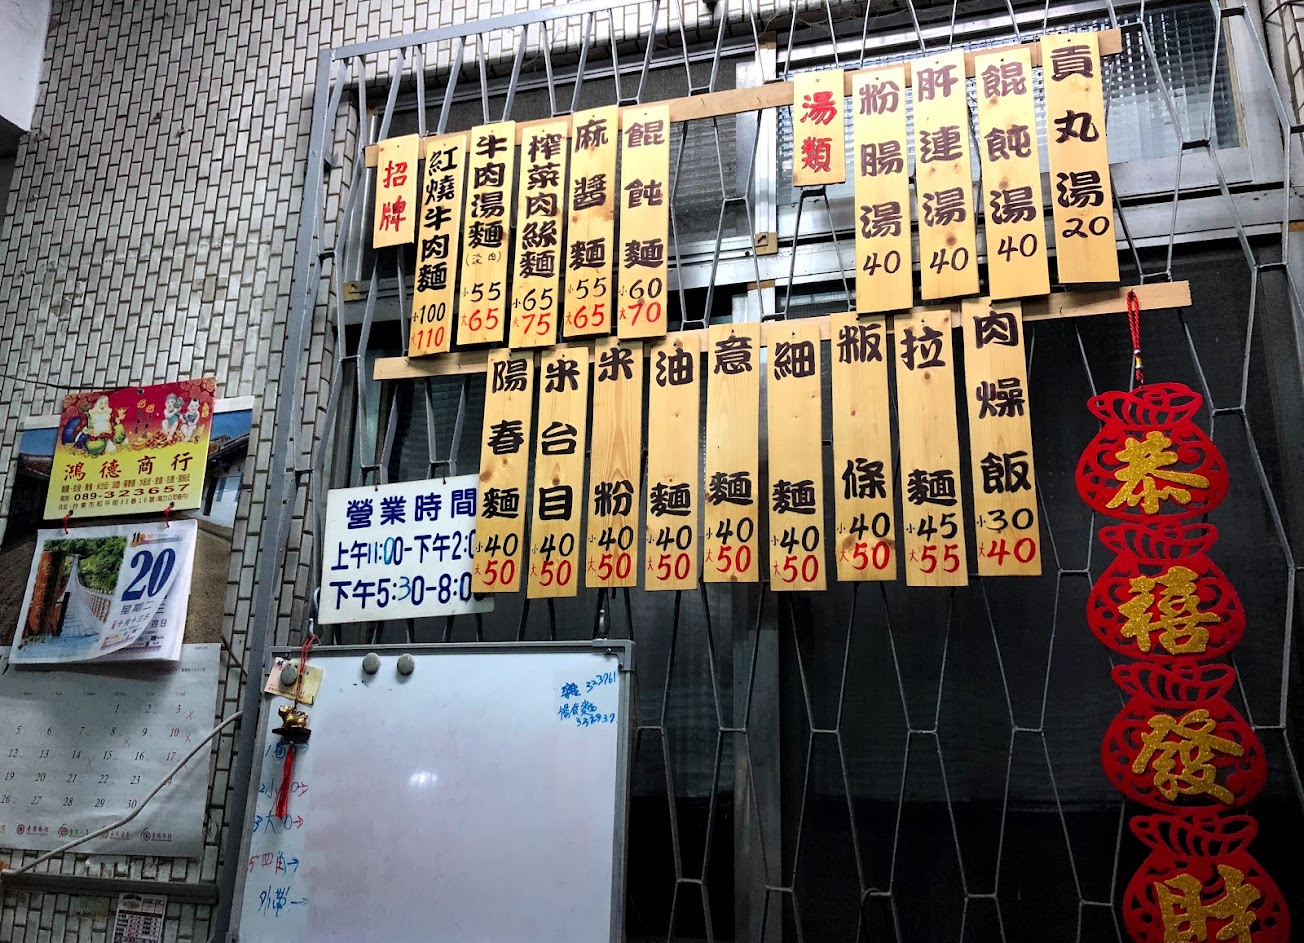 招牌
紅燒牛肉麵
小100
大110
牛肉湯麵
(沒肉)
小55
大65
榨菜肉絲麵
小65
大75
麻醬麵
小55
大65
餛飩麵
小60
大70
湯類
粉腸湯
40
肝連湯
40
餛飩湯
40
貢丸湯
20
陽春麵
小40
大50
米台目
小40
大50
米粉
小40
大50
油麵
小40
大50
意麵
小40
大50
細麵
小40
大50
粄條
小40
大50
拉麵
小45
大55
肉燥飯
小30
大40
營業時間
上午11:00-下午2:0
下午5:30-8:0
鴻德商行
089-323657
11
20
星期二
1 2 3
5 6 7 8 9 10
12 13 14 15 16 17
19 20 21 22 23
26 27 28 29 30
323761
陽春麵
恭
禧
發
財